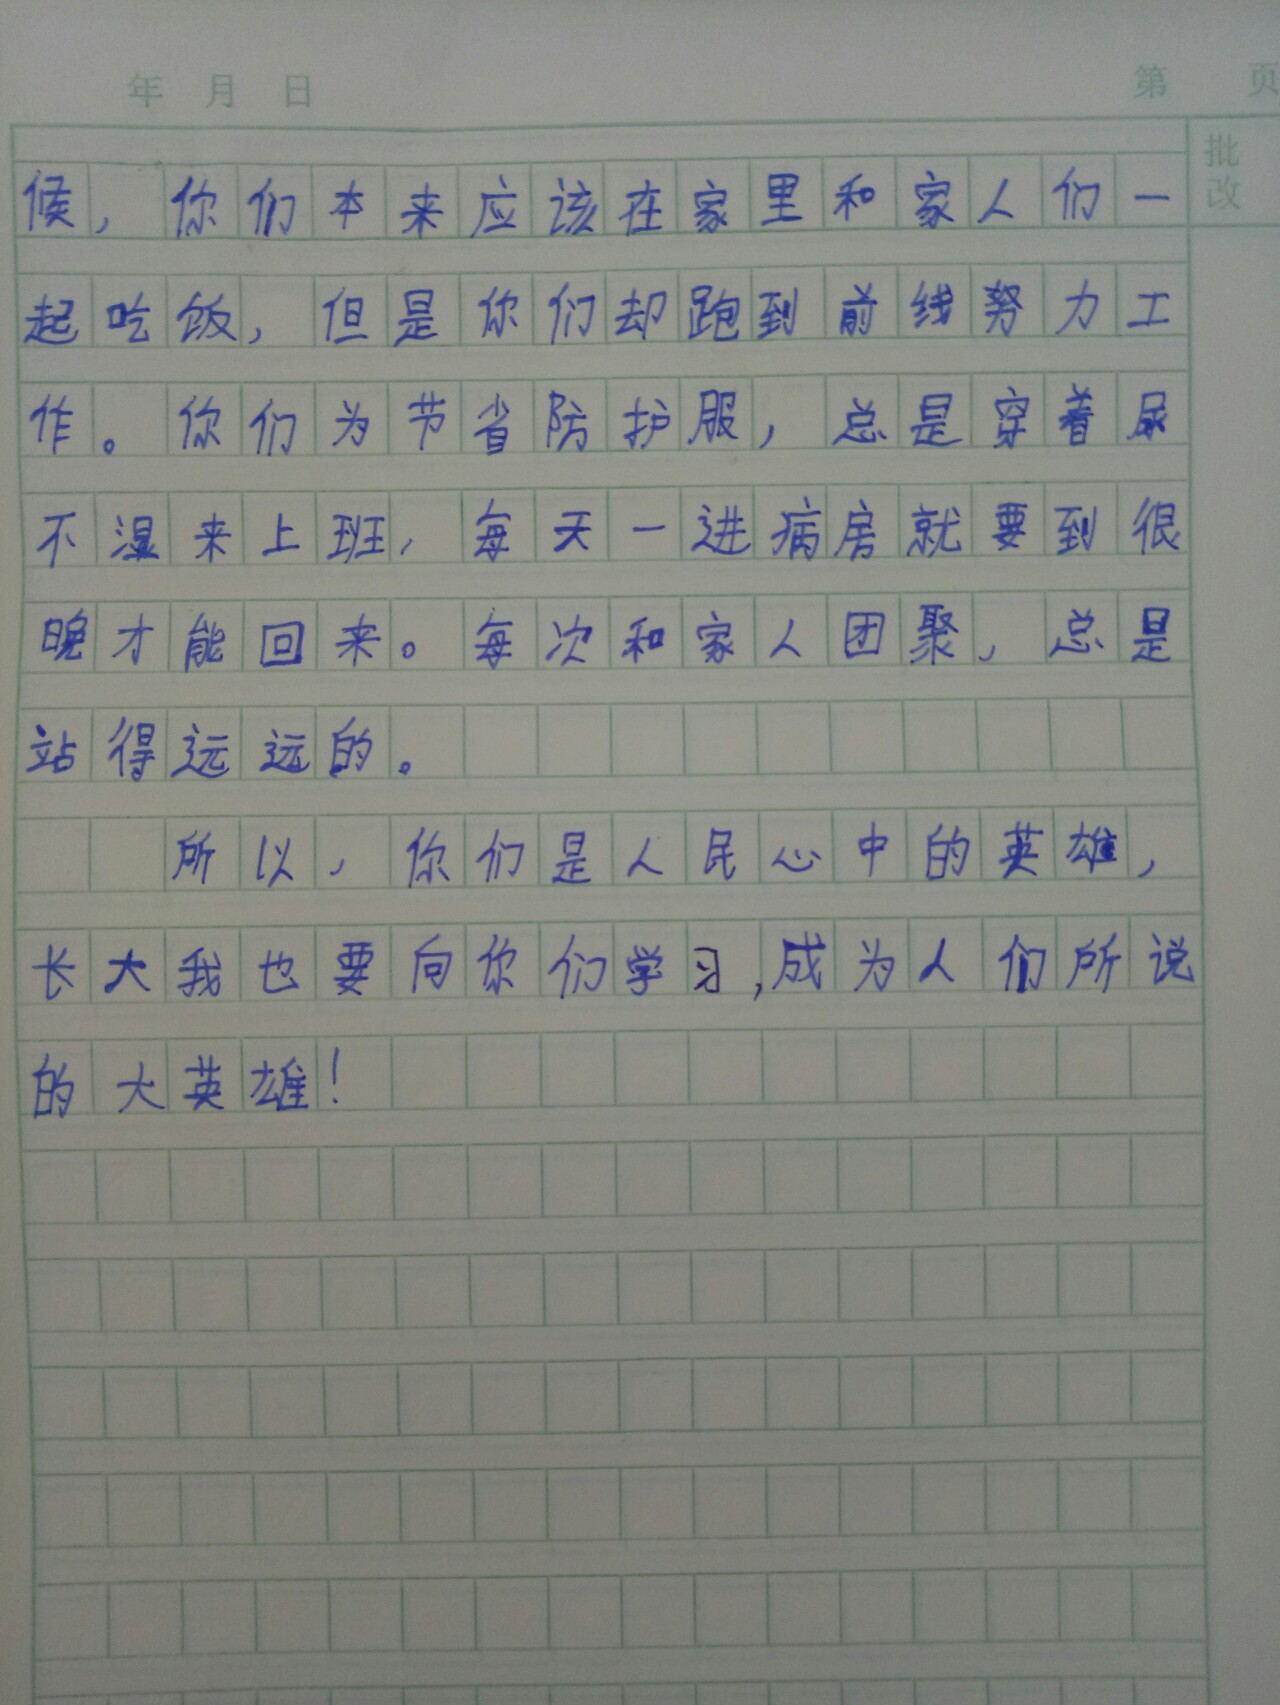 年 月 日 第 页
批改
候，你们本来应该在家里和家人们一
起吃饭，但是你们却跑到前线努力工
作。你们为节省防护服，总是穿着尿
不湿来上班，每天一进病房就要到很
晚才能回来。每次和家人团聚，总是
站得远远的。
所以，你们是人民心中的英雄，
长大我也要向你们学习，成为人们所说
的大英雄！